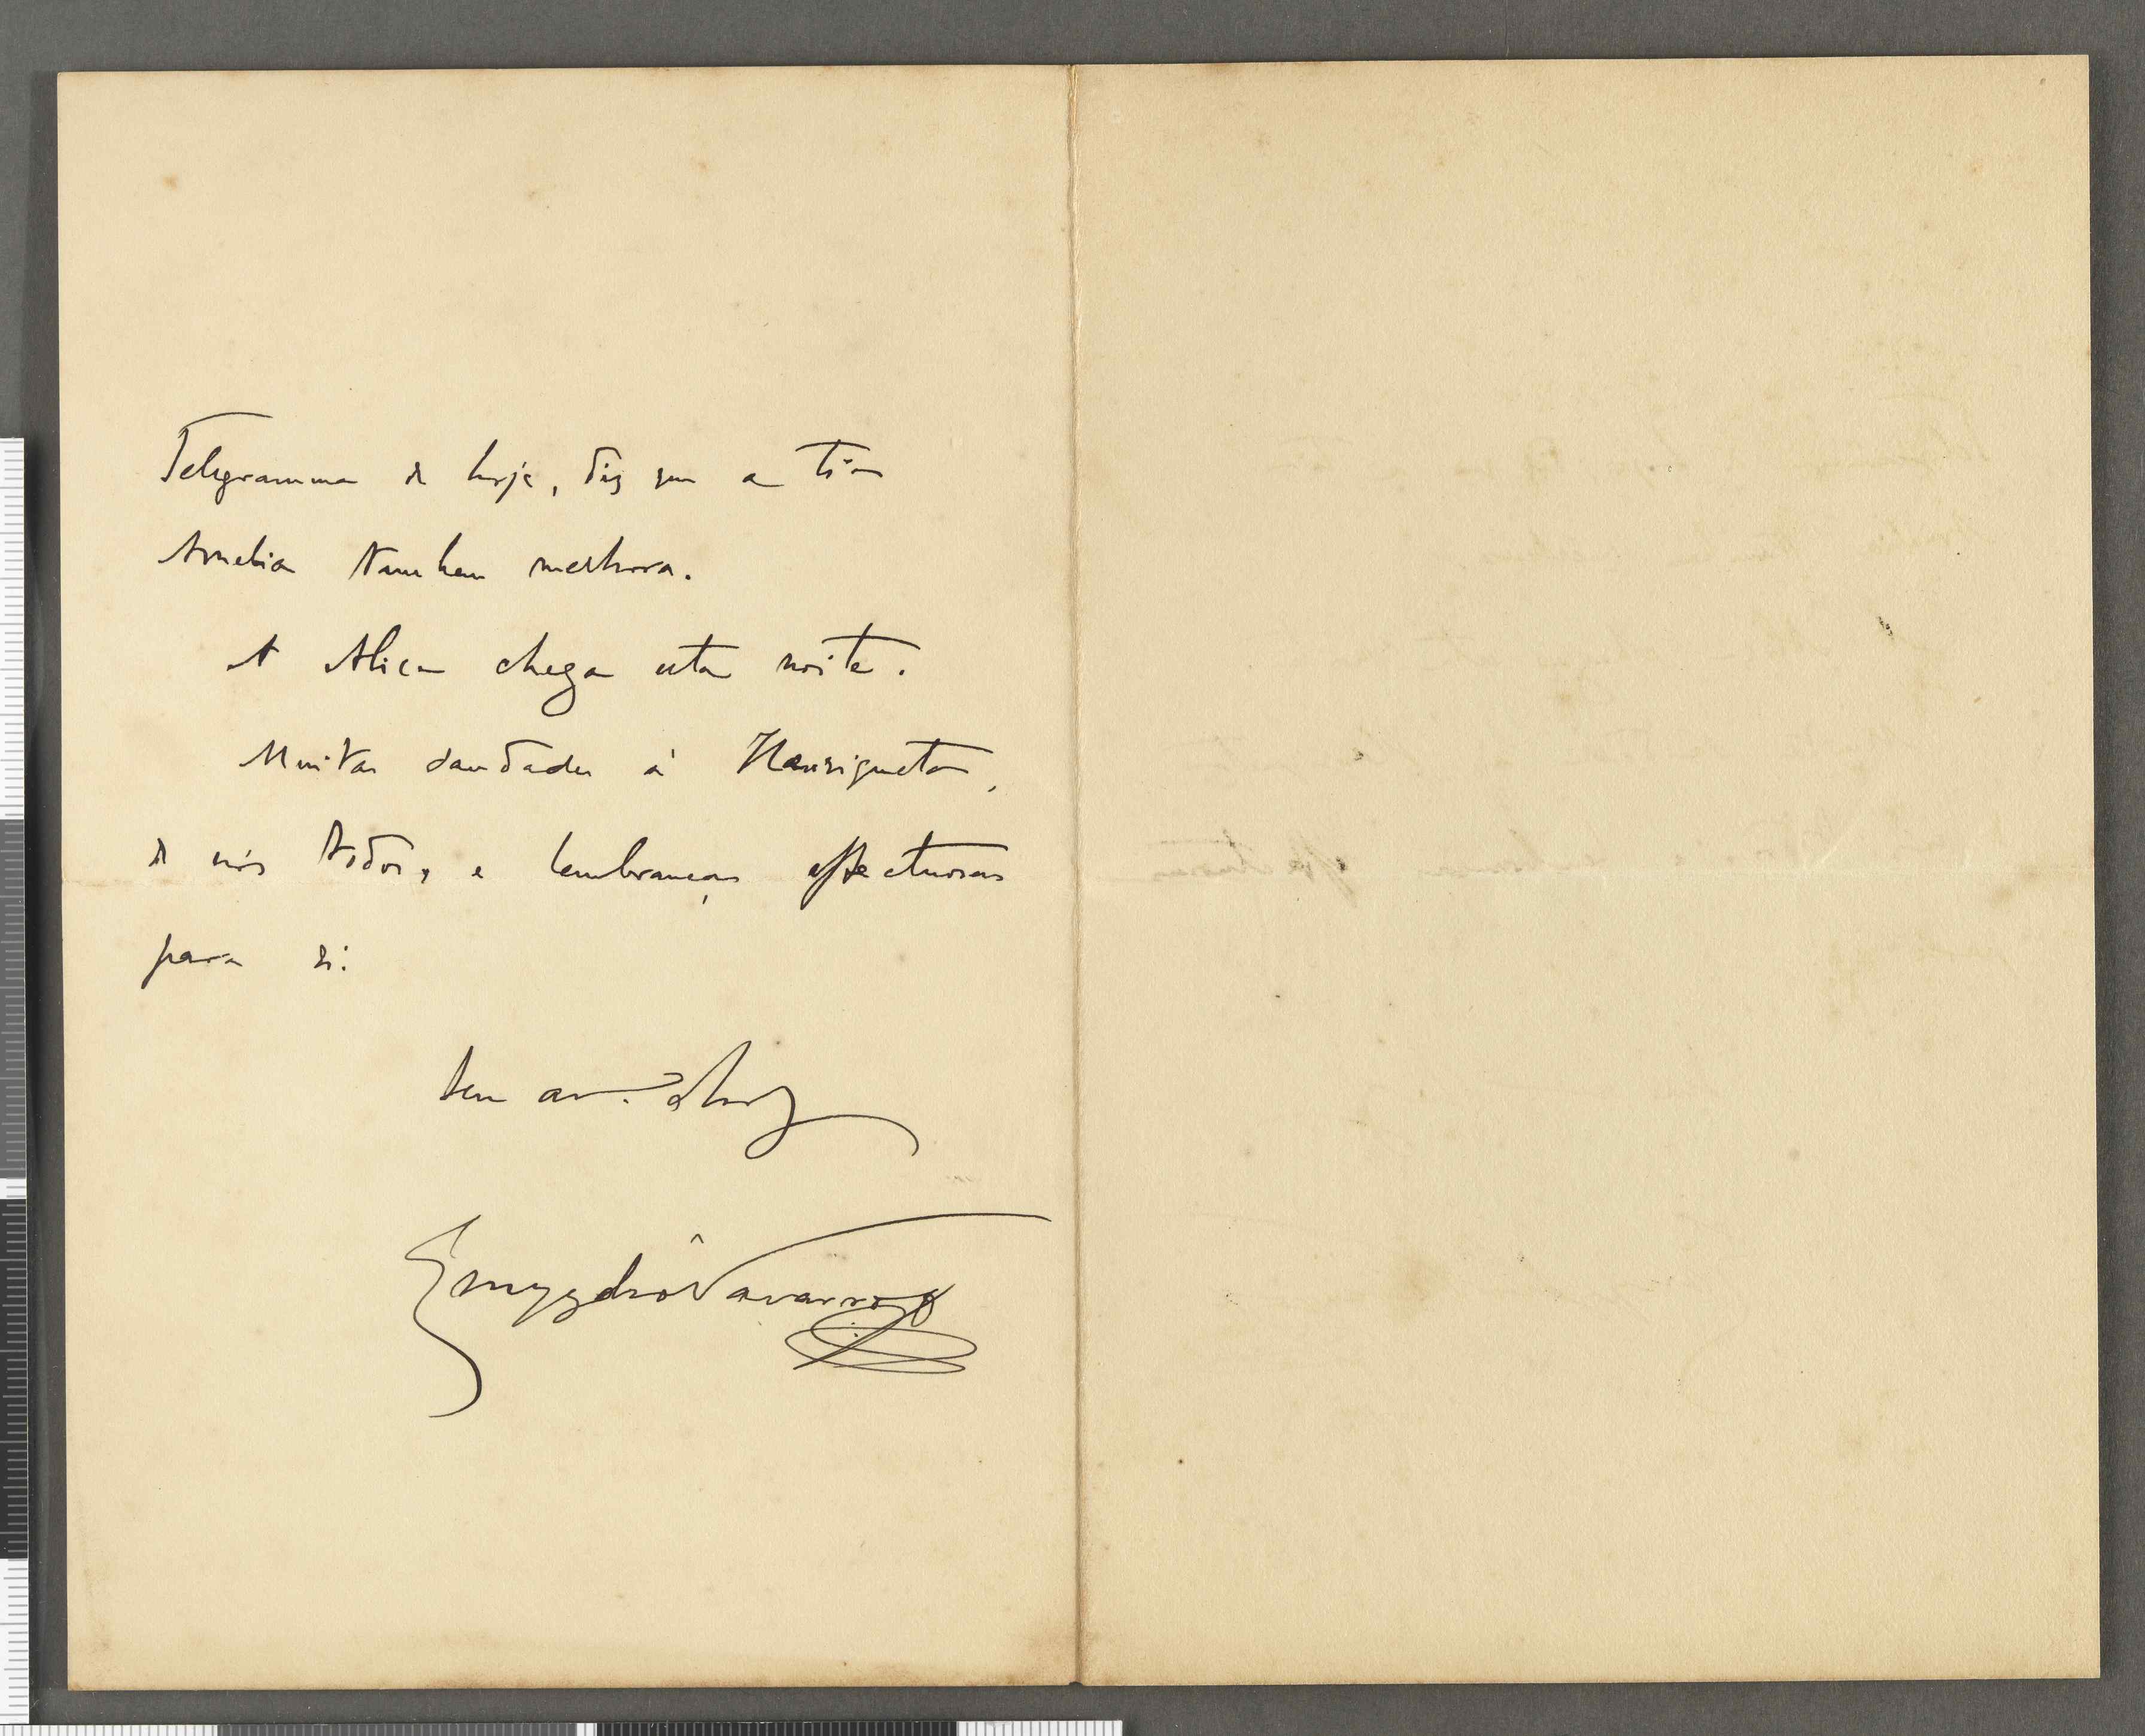 Telegramma de hoje, diz que a tia
Amelia tambem melhora.
A Alice chega esta noite.
Muitas saudades á Henriqueta,
de nós todos, e lembranças affectuosas
para si.
Seu am.
Emygdio Navarro